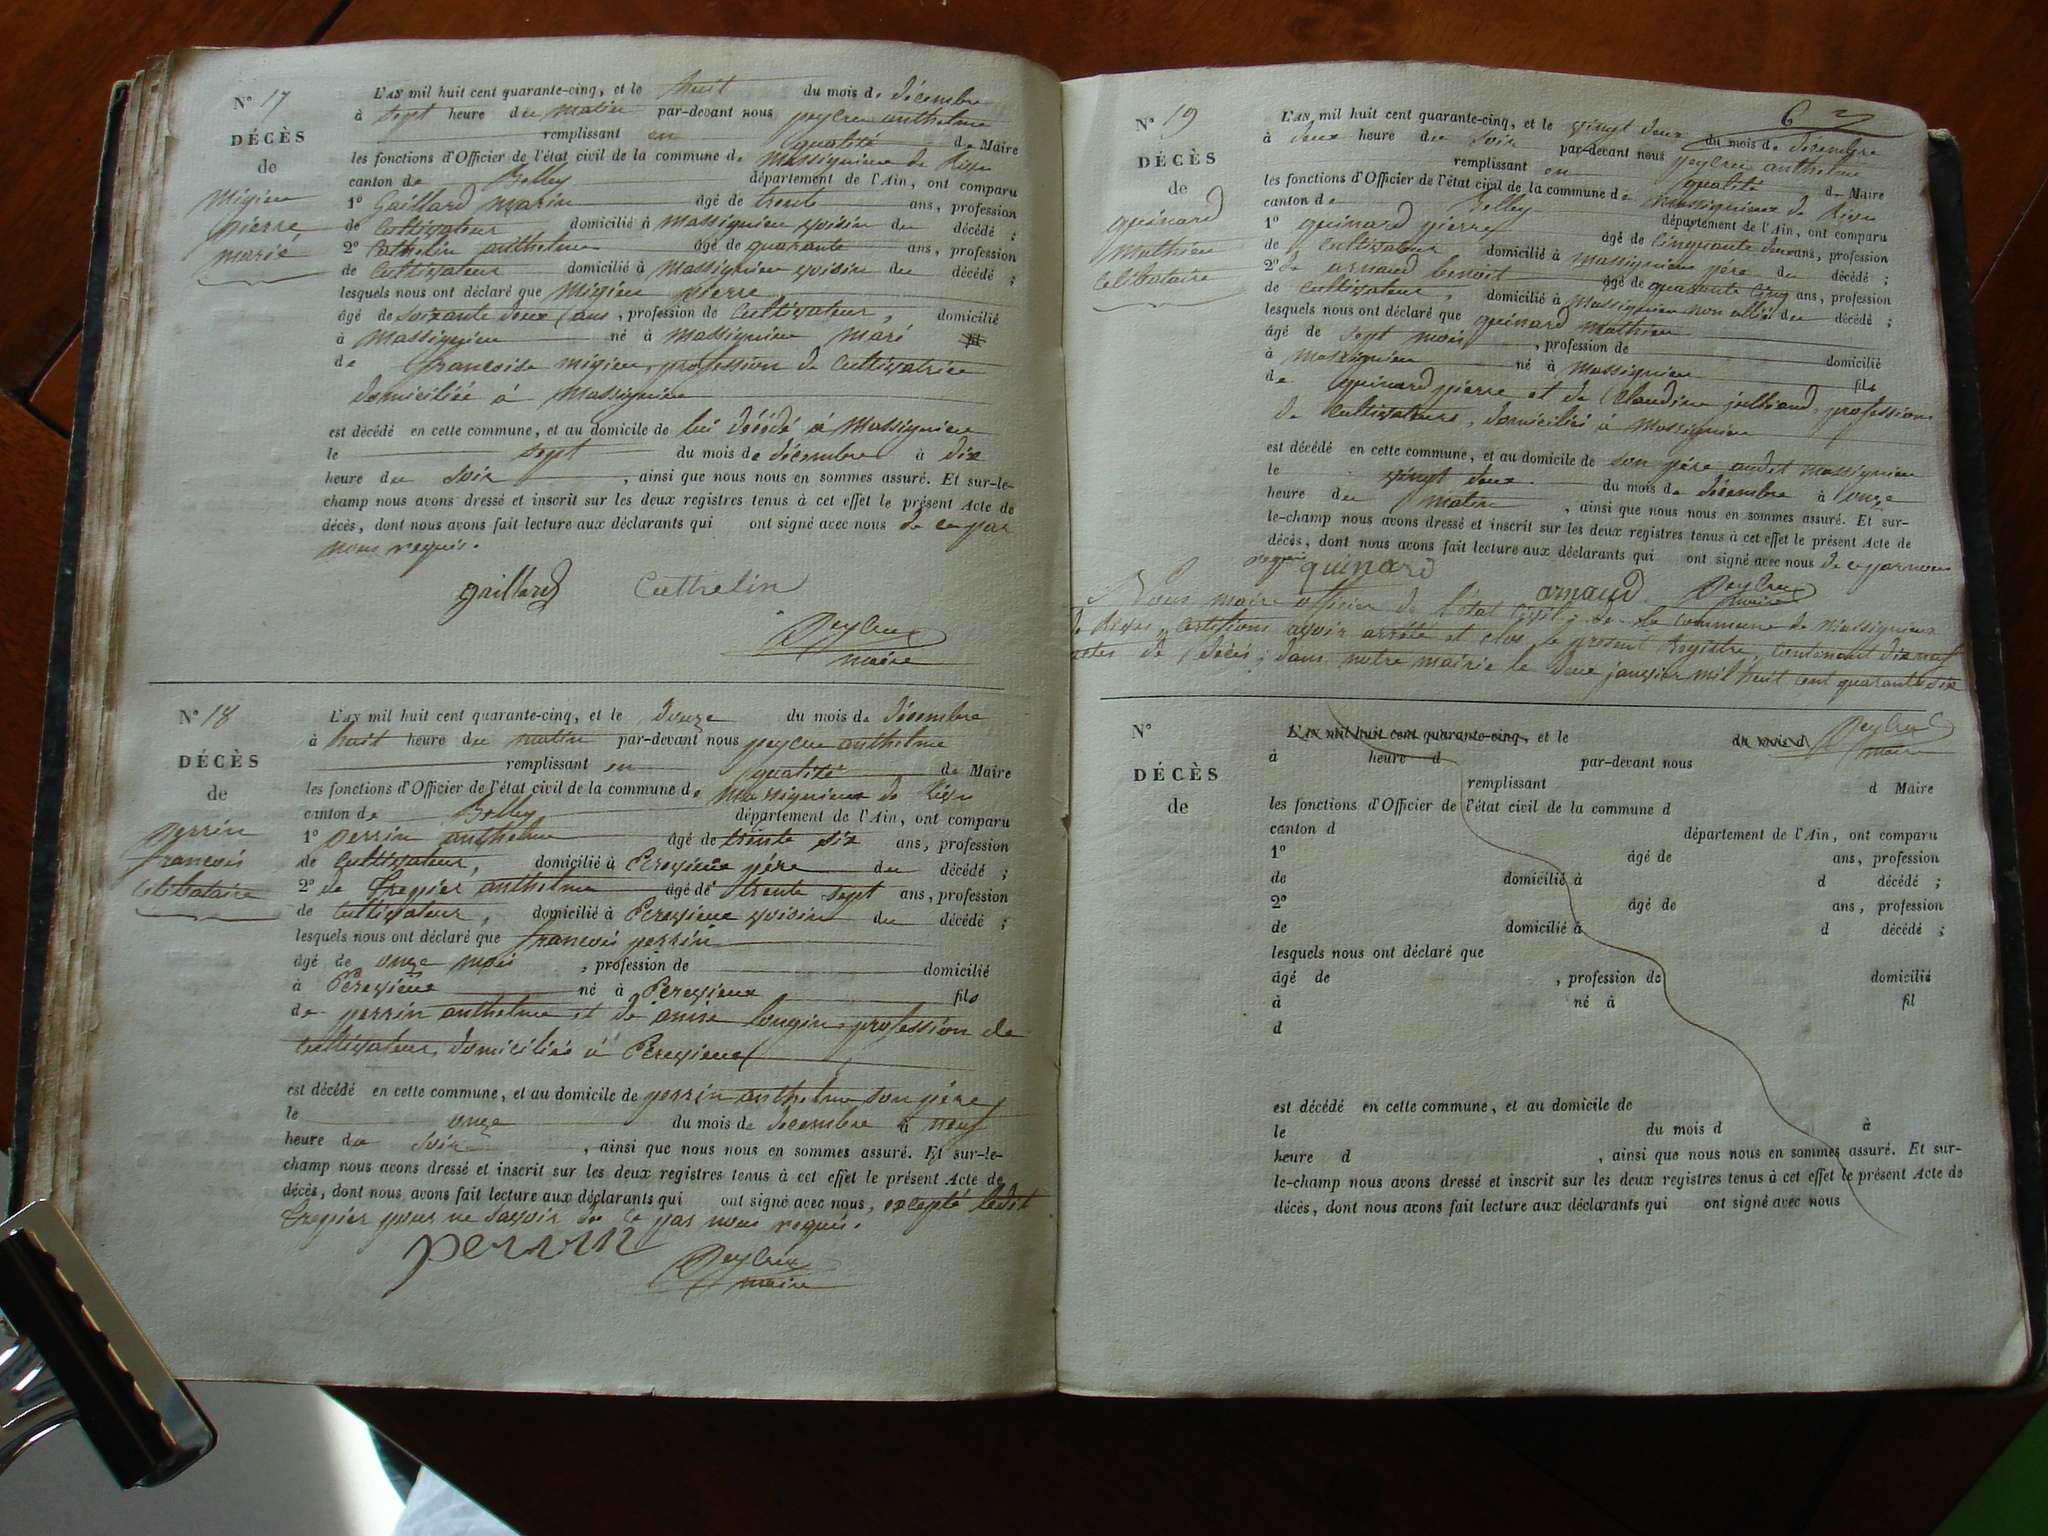 N° 17
DÉCÈS
de
Migieu
pierre
marié
L'AN mil huit cent quarante-cinq, et le huit du mois de décembre
à sept heure du matin par-devant nous peyCru anthelme
remplissant en qualité de Maire
les fonctions d'Officier de l'état civil de la commune de Massignieu de Rives
canton de Belley département de l'Ain, ont comparu
1° Gaillard marin âgé de trente ans, profession
de Cultivateur domicilié à Massignieu voisin du décédé ;
2° Cathelin anthelme âgé de quarante ans, profession
de Cultivateur domicilié à Massignieu voisin du décédé ;
lesquels nous ont déclaré que Migieu pierre
âgé de soixante deux ans, profession de Cultivateur, domicilié
à Massignieu né à Massignieu mari
de françoise migieu, profession de Cultivatrice
domiciliée à Massignieu
est décédé en cette commune, et au domicile de lui décédé à Massignieu
le sept du mois de décembre à dix
heure du soir, ainsi que nous nous en sommes assuré. Et sur-le-
champ nous avons dressé et inscrit sur les deux registres tenus à cet effet le présent Acte de
décès, dont nous avons fait lecture aux déclarants qui ont signé avec nous de ce par
nous requis.
gaillard Cathelin
PeyCru
maire
N° 18
DÉCÈS
de
perrin
françois
celibataire
L'AN mil huit cent quarante-cinq, et le douze du mois de décembre
à huit heure du matin par-devant nous peyCru anthelme
remplissant en qualité de Maire
les fonctions d'Officier de l'état civil de la commune de Massignieu de Rives
canton de Belley département de l'Ain, ont comparu
1° perrin anthelme âgé de trente six ans, profession
de Cultivateur, domicilié à Perevieux père du décédé ;
2° de Trepier anthelme âgé de trente sept ans, profession
de Cultivateur, domicilié à Perevieux voisin du décédé ;
lesquels nous ont déclaré que françois perrin
âgé de onze mois, profession de domicilié
à Perevieux né à Perevieux fils
de perrin anthelme et de anne longin profession de
cultivateur, domiciliés à Perevieux
est décédé en cette commune, et au domicile de perrin anthelme son père
le onze du mois de décembre à neuf
heure du soir, ainsi que nous nous en sommes assuré. Et sur-le-
champ nous avons dressé et inscrit sur les deux registres tenus à cet effet le présent Acte de
décès, dont nous avons fait lecture aux déclarants qui ont signé avec nous, excepté ledit
Trepier pour ne savoir de ce par nous requis.
perrin
PeyCru
maire
6
N° 19
DÉCÈS
de
guinard
Mathieu
Celibataire
L'AN mil huit cent quarante-cinq, et le vingt deux du mois de décembre
à deux heure du soir par-devant nous peyCru anthelme
remplissant en qualité de Maire
les fonctions d'Officier de l'état civil de la commune de Massignieu de Rives
canton de Belley département de l'Ain, ont comparu
1° guinard pierre âgé de cinquante deux ans, profession
de cultivateur domicilié à Massignieu père du décédé ;
2° de arnaud benoit âgé de quarante cinq ans, profession
de cultivateur, domicilié à Massignieu non allié du décédé ;
lesquels nous ont déclaré que guinard Mathieu
âgé de sept mois, profession de domicilié
à Massignieu né à Massignieu fils
de guinard pierre et de Claudine julliand, profession
de cultivateurs, domiciliés à Massignieu
est décédé en cette commune, et au domicile de son père audit Massignieu
le vingt deux du mois de décembre à onze
heure du matin, ainsi que nous nous en sommes assuré. Et sur-
le-champ nous avons dressé et inscrit sur les deux registres tenus à cet effet le présent Acte de
décès, dont nous avons fait lecture aux déclarants qui ont signé avec nous de ce par nous
requis guinard arnaud PeyCru
maire
Nous maire officier de l'état Civil, de la Commune de Massignieu
de Rives, certifions avoir arrêté et clos, le présent Registre, contenant dix neuf
actes de décès ; dans notre mairie le deux janvier mil huit cent quarante six
PeyCru
maire
N°
DÉCÈS
de
L'AN mil huit cent quarante-cinq, et le du mois d
à heure d par-devant nous
remplissant d Maire
les fonctions d'Officier de l'état civil de la commune d
canton d département de l'Ain, ont comparu
1° âgé de ans, profession
de domicilié à d décédé ;
2° âgé de ans, profession
de domicilié à d décédé ;
lesquels nous ont déclaré que
âgé de , profession de domicilié
à né à fil
d
est décédé en cette commune, et au domicile de
le du mois d à
heure d , ainsi que nous nous en sommes assuré. Et sur-
le-champ nous avons dressé et inscrit sur les deux registres tenus à cet effet le présent Acte de
décès, dont nous avons fait lecture aux déclarants qui ont signé avec nous